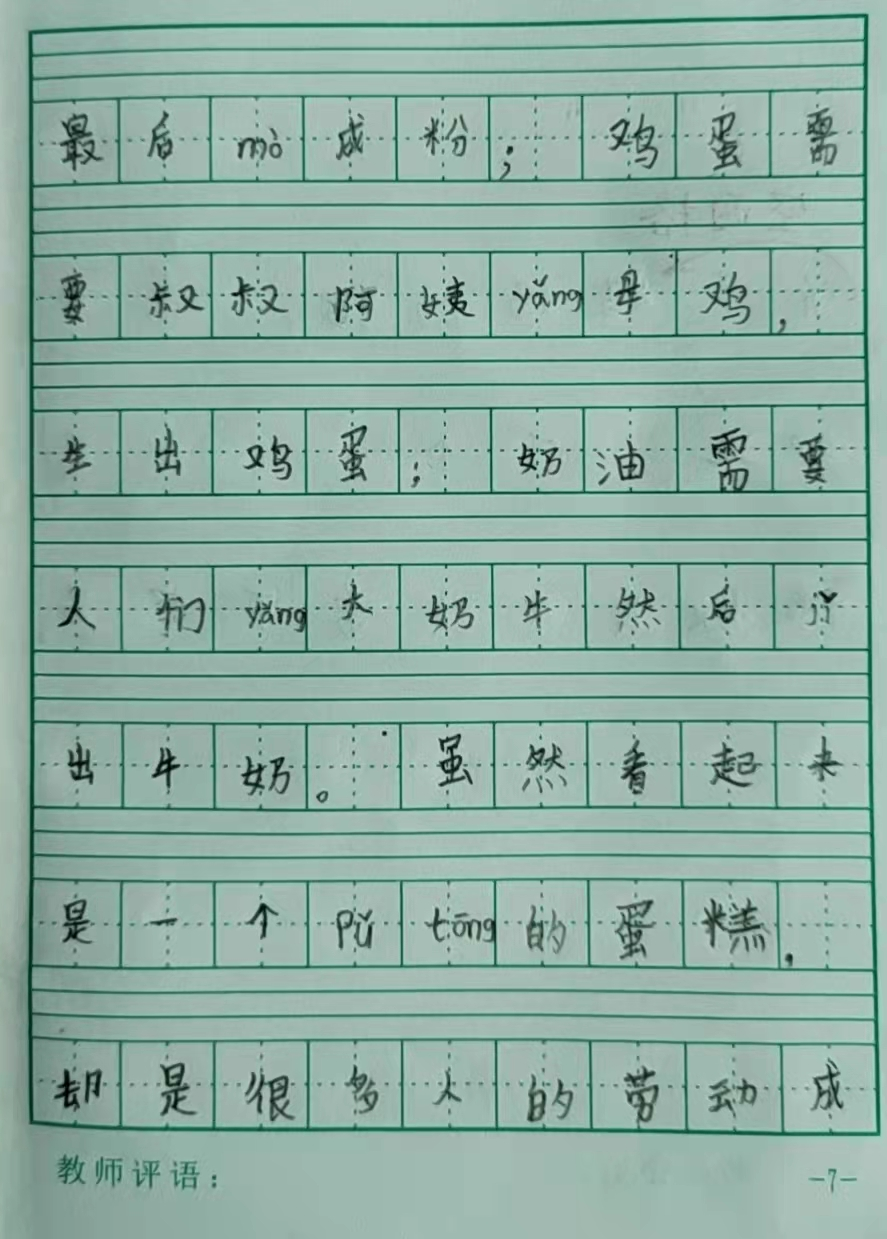 最后mò成粉；鸡蛋需
要叔叔阿姨yǎng母鸡，
生出鸡蛋；奶油需要
人们yǎng大奶牛然后jǐ
出牛奶。虽然看起来
是一个pǔtōng的蛋糕，
却是很多人的劳动成
教师评语：
-7-